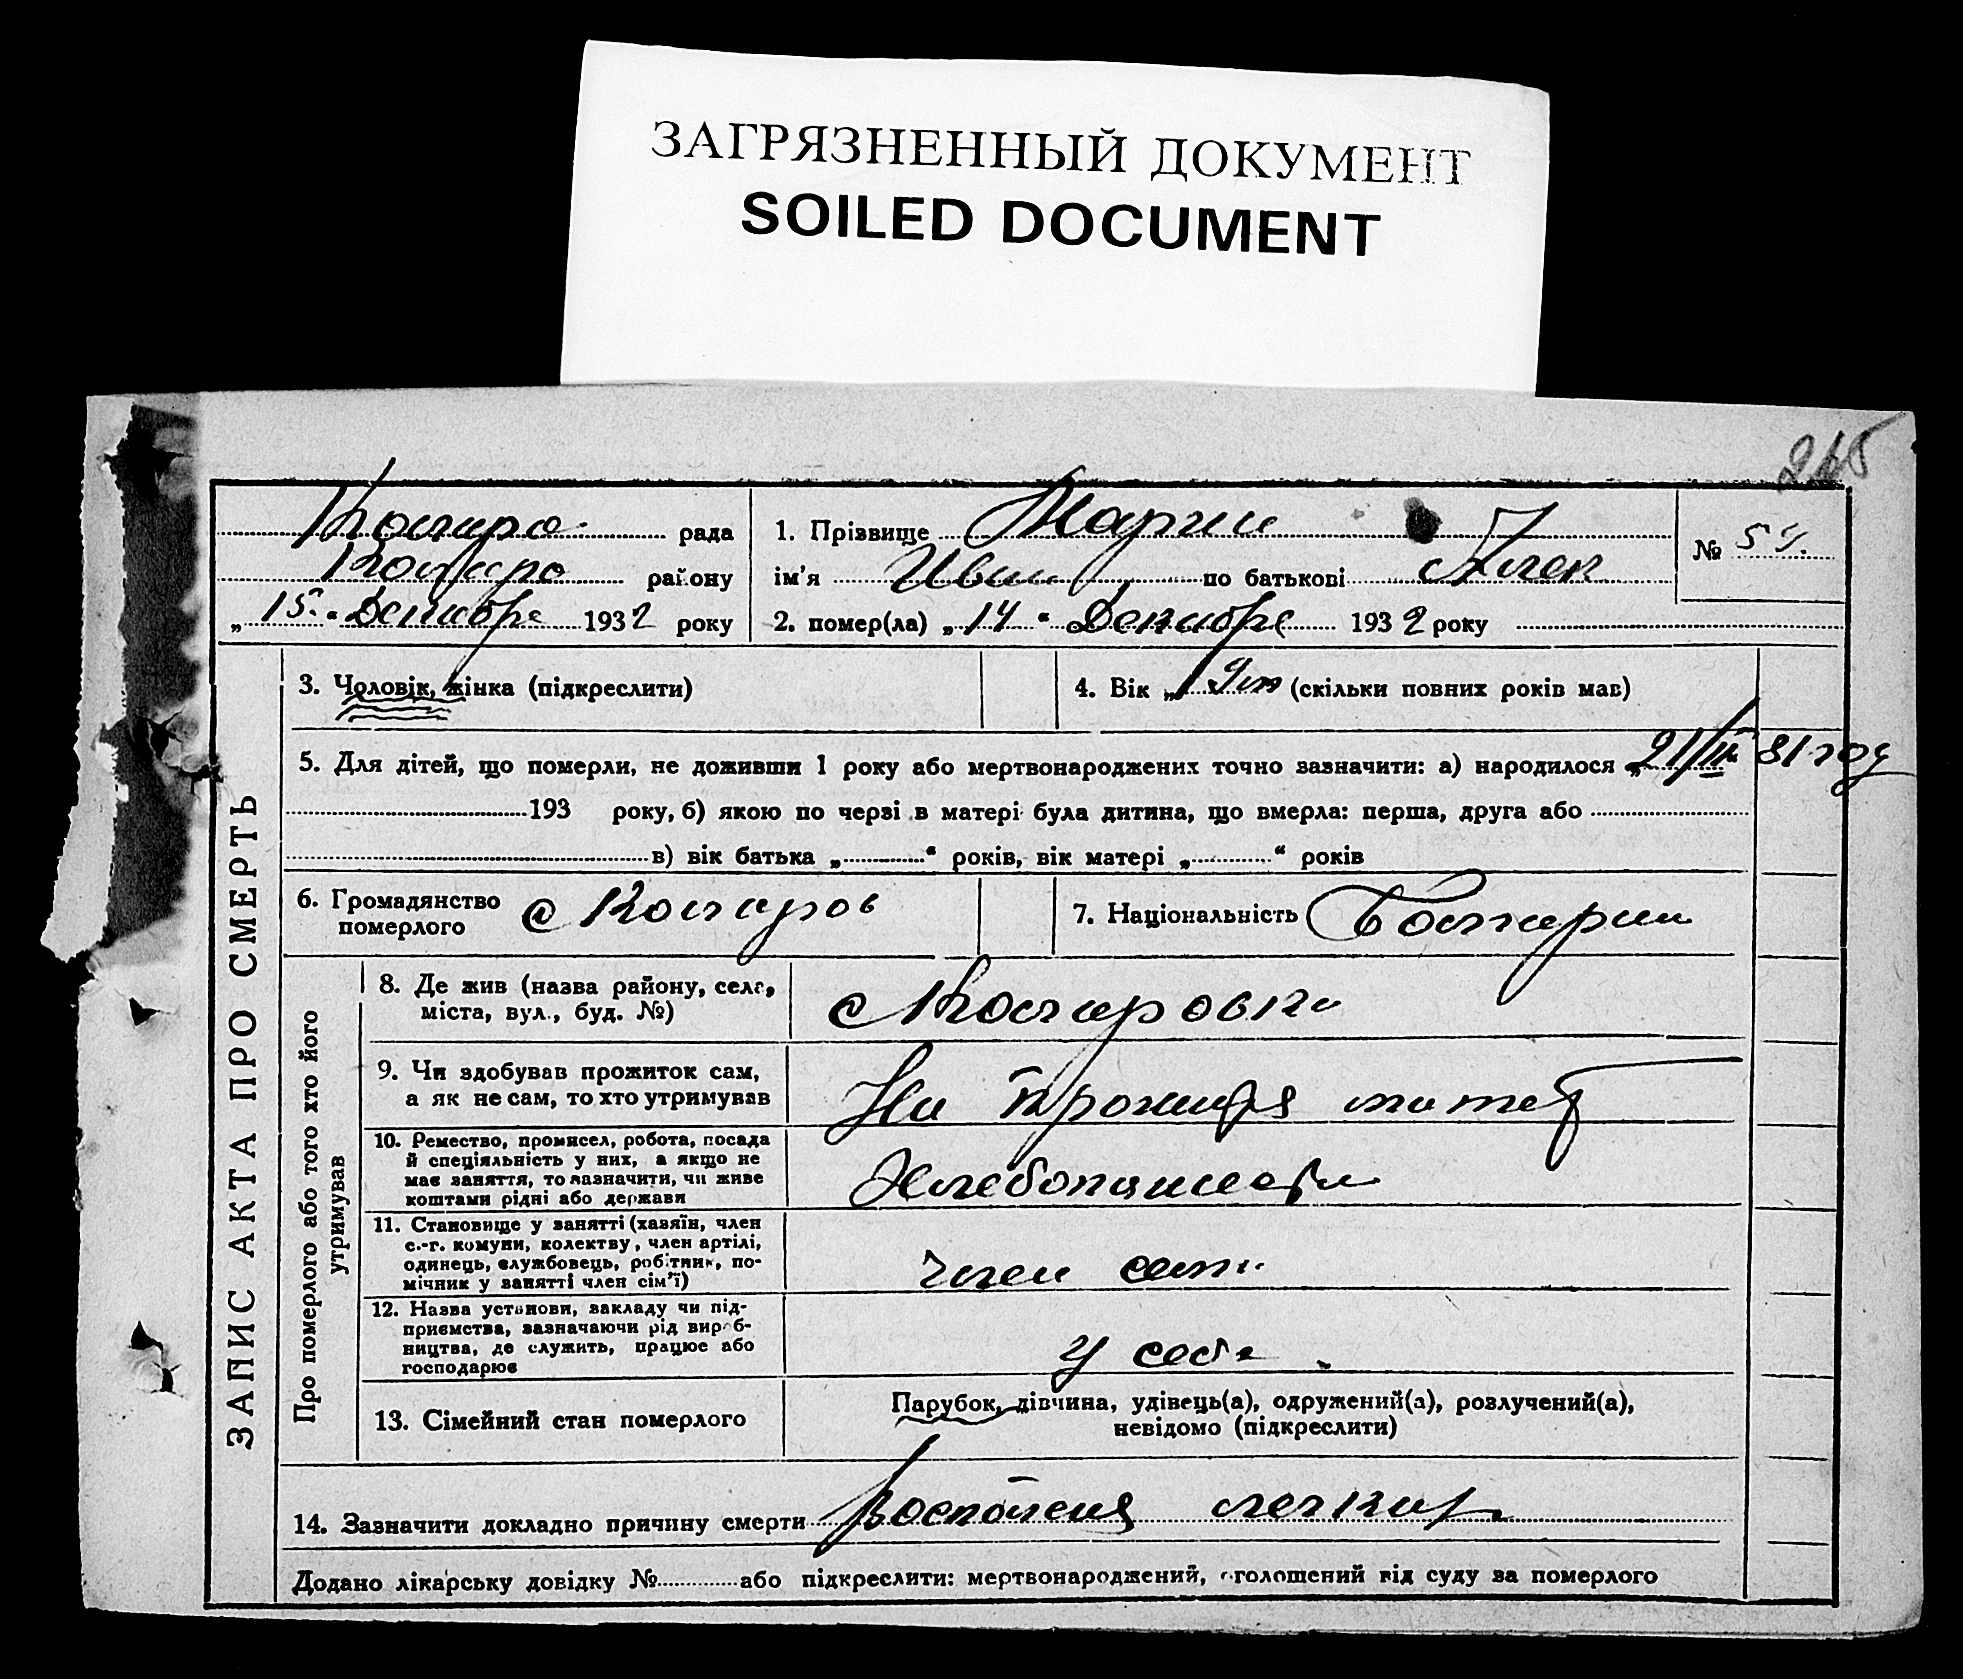 ЗАГРЯЗНЕННЫЙ ДОКУМЕНТ
SOILED DOCUMENT
265
рада
району
„15.“ Декабре 1932 року
1. Прізвище Марин
ім'я Иван по батькові Алек
2. помер(ла) „14“ Декабре 1932 року
№
ЗАПИС АКТА ПРО СМЕРТЬ
3. Чоловік, жінка (підкреслити)
4. Вік „ (скільки повних років мав)
5. Для дітей, що померли, не доживши 1 року або мертвонароджених точно зазначити: а) народилося „21/III 31 году
193 року, б) якою по черзі в матері була дитина, що вмерла: перша, друга або
в) вік батька „ “ років, вік матері „ “ років
6. Громадянство
померлого
7. Національність Болгарин
Про померлого або того хто його
утримував
8. Де жив (назва району, села,
міста, вул., буд. №)
9. Чи здобував прожиток сам,
а як не сам, то хто утримував
10. Ремество, промисел, робота, посада
й спеціяльність у них, а якщо не
має заняття, то зазначити, чи живе
коштами рідні або держави
11. Становище у занятті (хазяїн, член
с.-г. комуни, колективу, член артілі,
одинець, службовець, робітник, по-
мічник у занятті член сім'ї)
член семи
12. Назва установи, закладу чи під-
приємства, зазначаючи рід вироб-
ництва, де служить, працює або
господарює
у себе
13. Сімейний стан померлого
Парубок, дівчина, удівець(а), одружений(а), розлучений(а),
невідомо (підкреслити)
14. Зазначити докладно причину смерти Воспаления легких
Додано лікарську довідку № або підкреслити: мертвонароджений, оголошений від суду за померлого